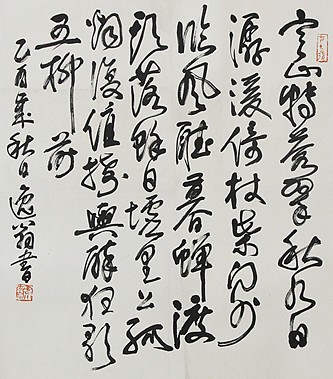 寒山轉蒼翠秋水日
潺湲倚杖柴門外
臨風聽暮蟬渡
頭落餘日墟里上孤
煙復值接輿醉狂歌
五柳前
乙酉歲秋日逸翁書